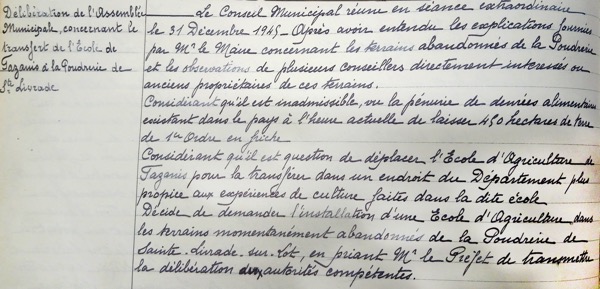 Délibération de l'Assemblée
Municipale, concernant le
transfert de l'Ecole de
Fazanis à la Poudrerie de
Ste Livrade
Le Conseil Municipal réuni en séance extraordinaire
le 31 Décembre 1945. Après avoir entendu les explications fournies
par Mr le Maire concernant les terrains abandonnés de la Poudrerie
et les observations de plusieurs conseillers directement intéressés ou
anciens propriétaires de ces terrains.
Considérant qu'il est inadmissible, vu la pénurie de denrées alimentaires
existant dans le pays à l'heure actuelle de laisser 450 hectares de terre
de 1er Ordre en friche
Considérant qu'il est question de déplacer l'Ecole d'Agriculture de
Fazanis pour la transférer dans un endroit du Département plus
propice aux expériences de culture faites dans la dite école
Décide de demander l'installation d'une Ecole d'Agriculture, dans
les terrains momentanément abandonnés de la Poudrerie de
Sainte-Livrade-sur-Lot, en priant Mr le Préfet de transmettre
la délibération aux autorités compétentes.